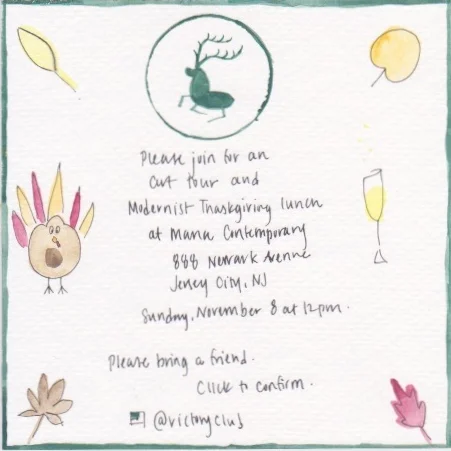 Please join for an
art tour and
Modernist Thanksgiving lunch
at Mana Contemporary
888 Newark Avenue
Jersey City, NJ
Sunday, November 8 at 12pm.
Please bring a friend.
Click to confirm.
@victoryclub